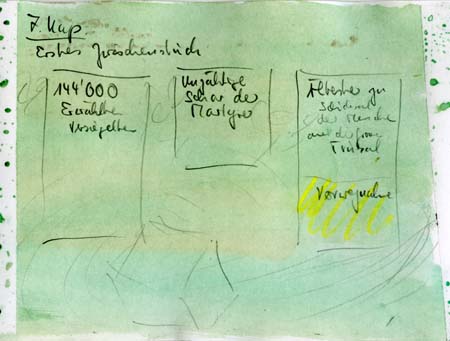 7. Kap
Erstes Zwischenstück
144'000
Erwählten
Versiegelten
Unzählige
Schar der
Martyrer
Ältester zu
Schicksal
der Menschen
der
Trübsal
Vorwegnahme